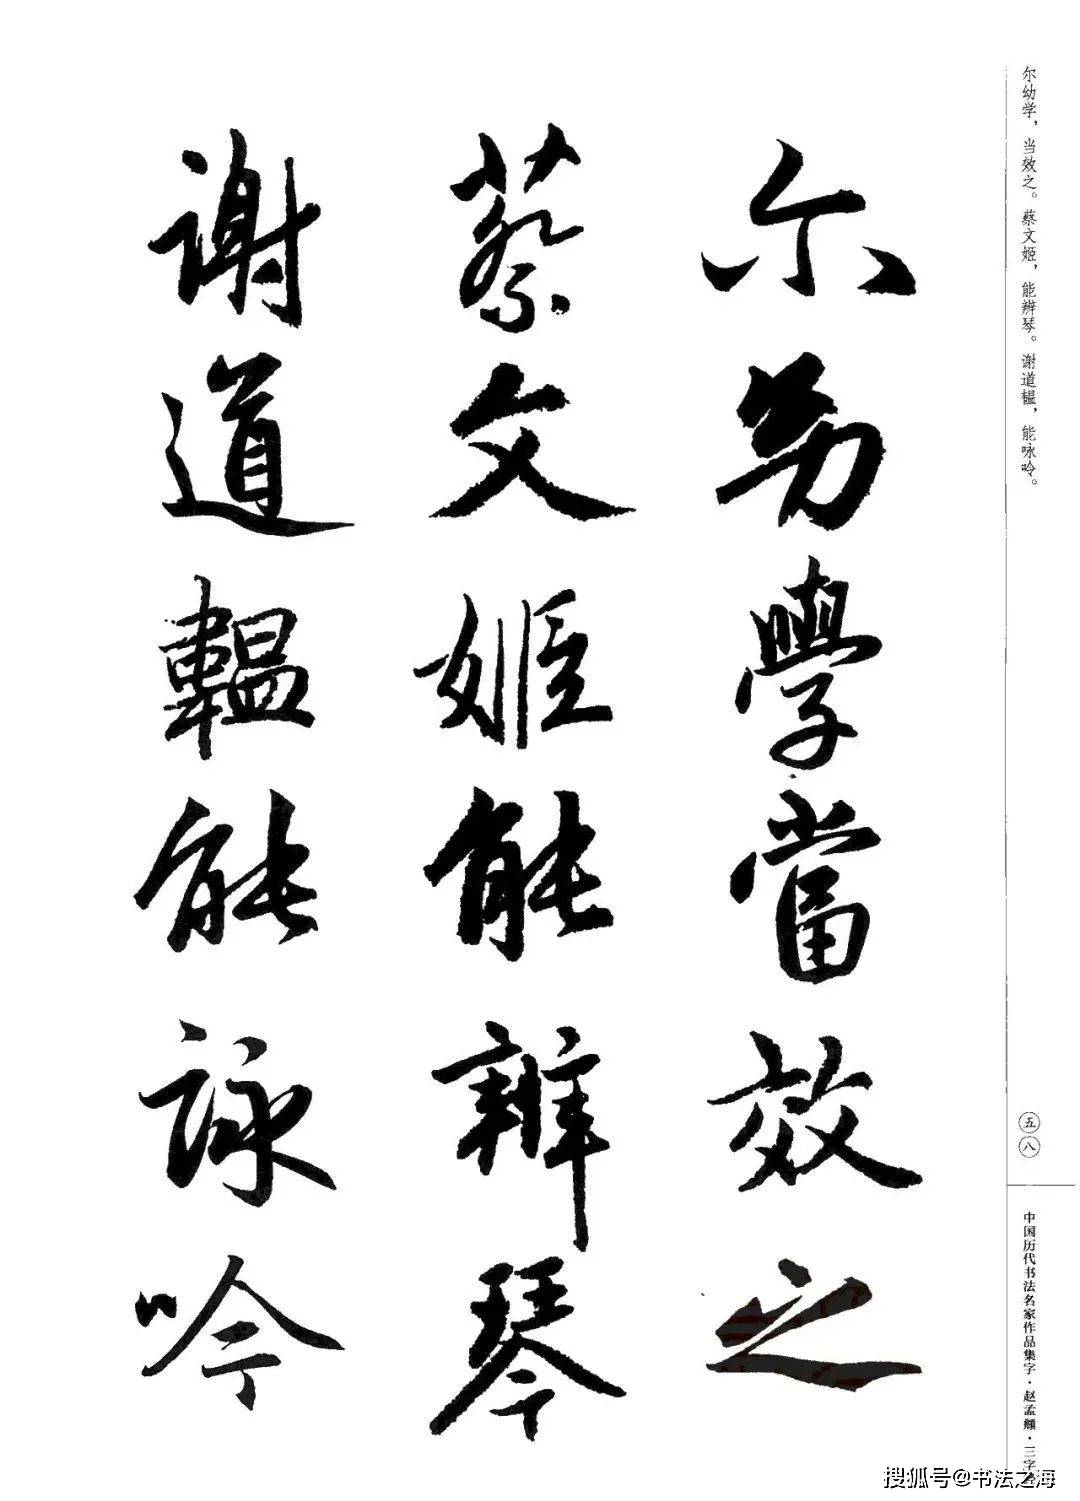 尔幼学，当效之。蔡文姬，能辨琴。谢道韫，能咏吟。
尔幼學當效之
蔡文姬能辨琴
谢道韞能詠吟
五八
中国历代书法名家作品集字·赵孟頫·三字经
搜狐号@书法之海